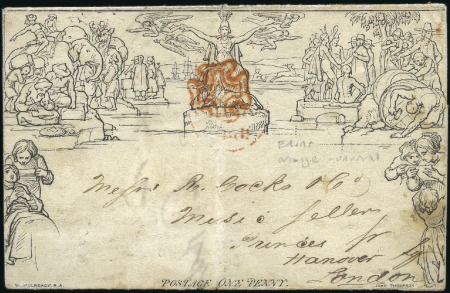 Messrs R. Cocks & Co
Music Sellers
Princes St
Hanover Sq
London
POSTAGE ONE PENNY.
W. MULREADY, R.A.
JOHN THOMPSON